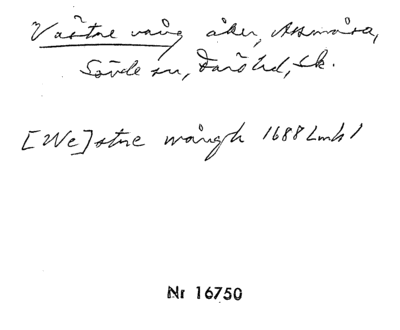 Västre vång åker, Assmåsa,
Sövde sn, Färs hd, Sk.
[We]stre wångh 1688 Lmh 1
Nr 16750